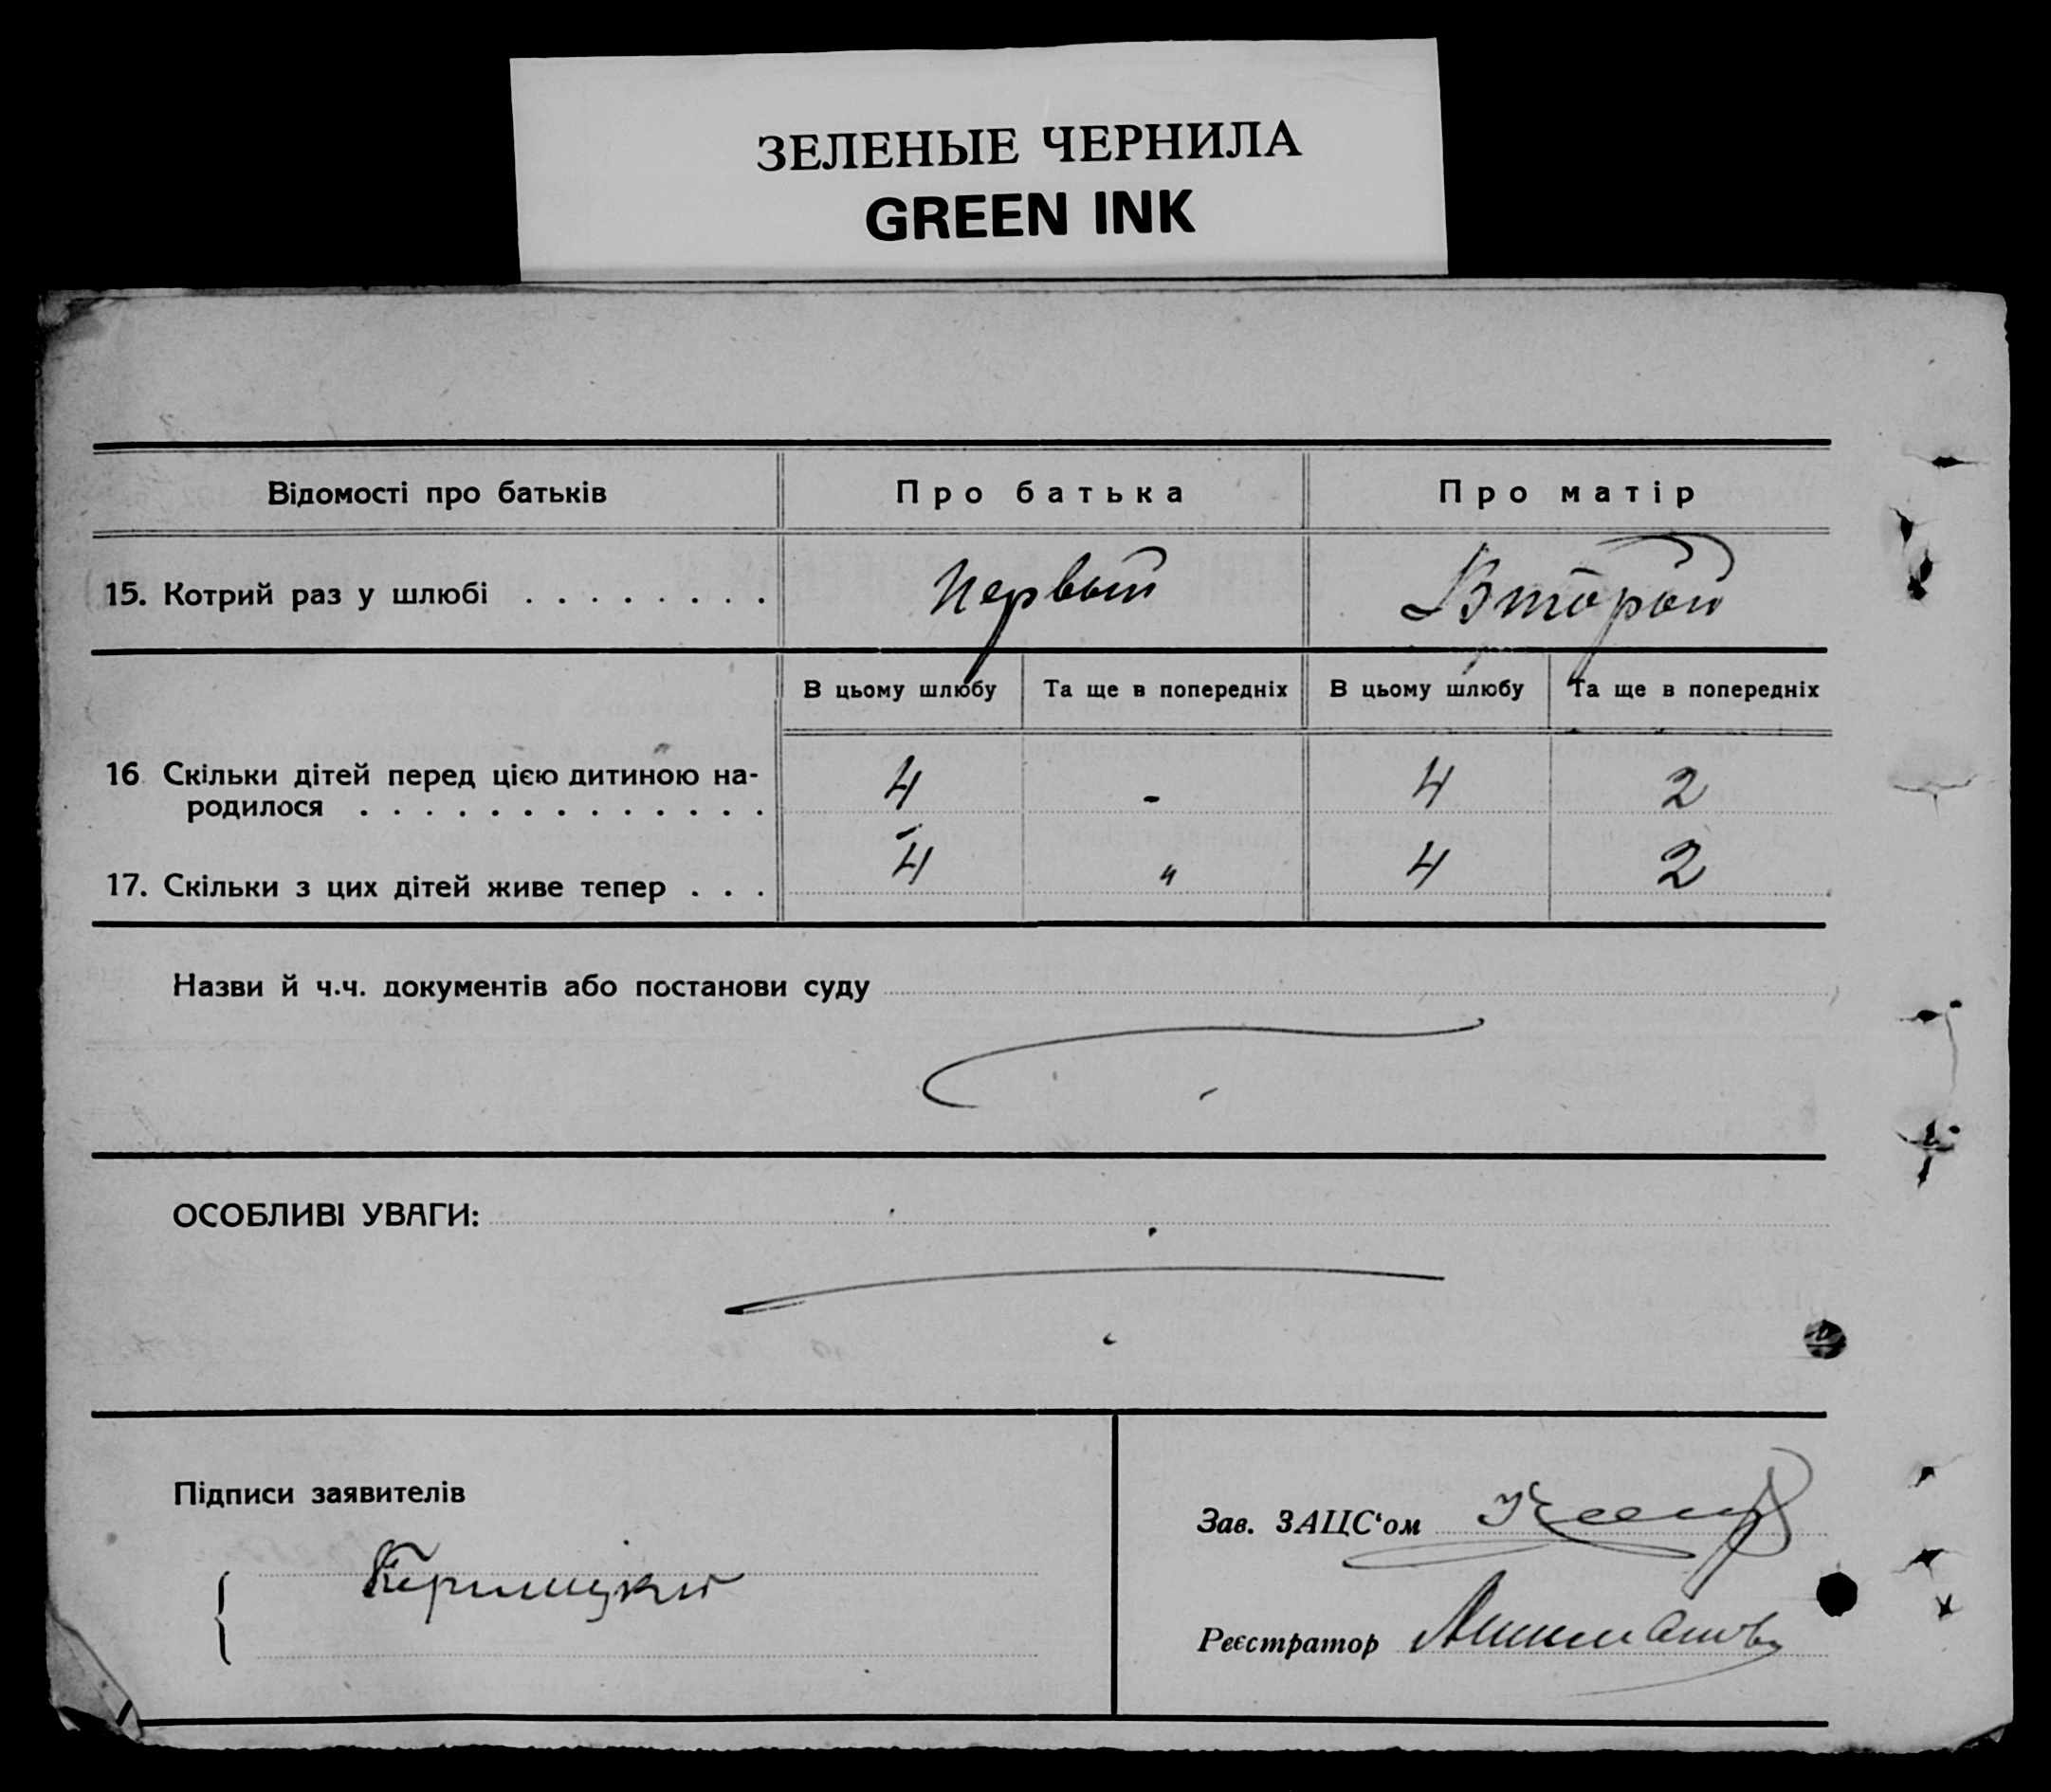 ЗЕЛЕНЫЕ ЧЕРНИЛА
GREEN INK
Відомості про батьків Про батька Про матір
15. Котрий раз у шлюбі . . . . . . . . Первый Второй
В цьому шлюбу Та ще в попередніх В цьому шлюбу Та ще в попередніх
16 Скільки дітей перед цією дитиною на-
родилося . . . . . . . . . . . . . . 4 - 4 2
17. Скільки з цих дітей живе тепер . . . 4 " 4 2
Назви й ч.ч. документів або постанови суду
ОСОБЛИВІ УВАГИ:
Підписи заявителів
Зав. ЗАЦС‘ом
Реєстратор